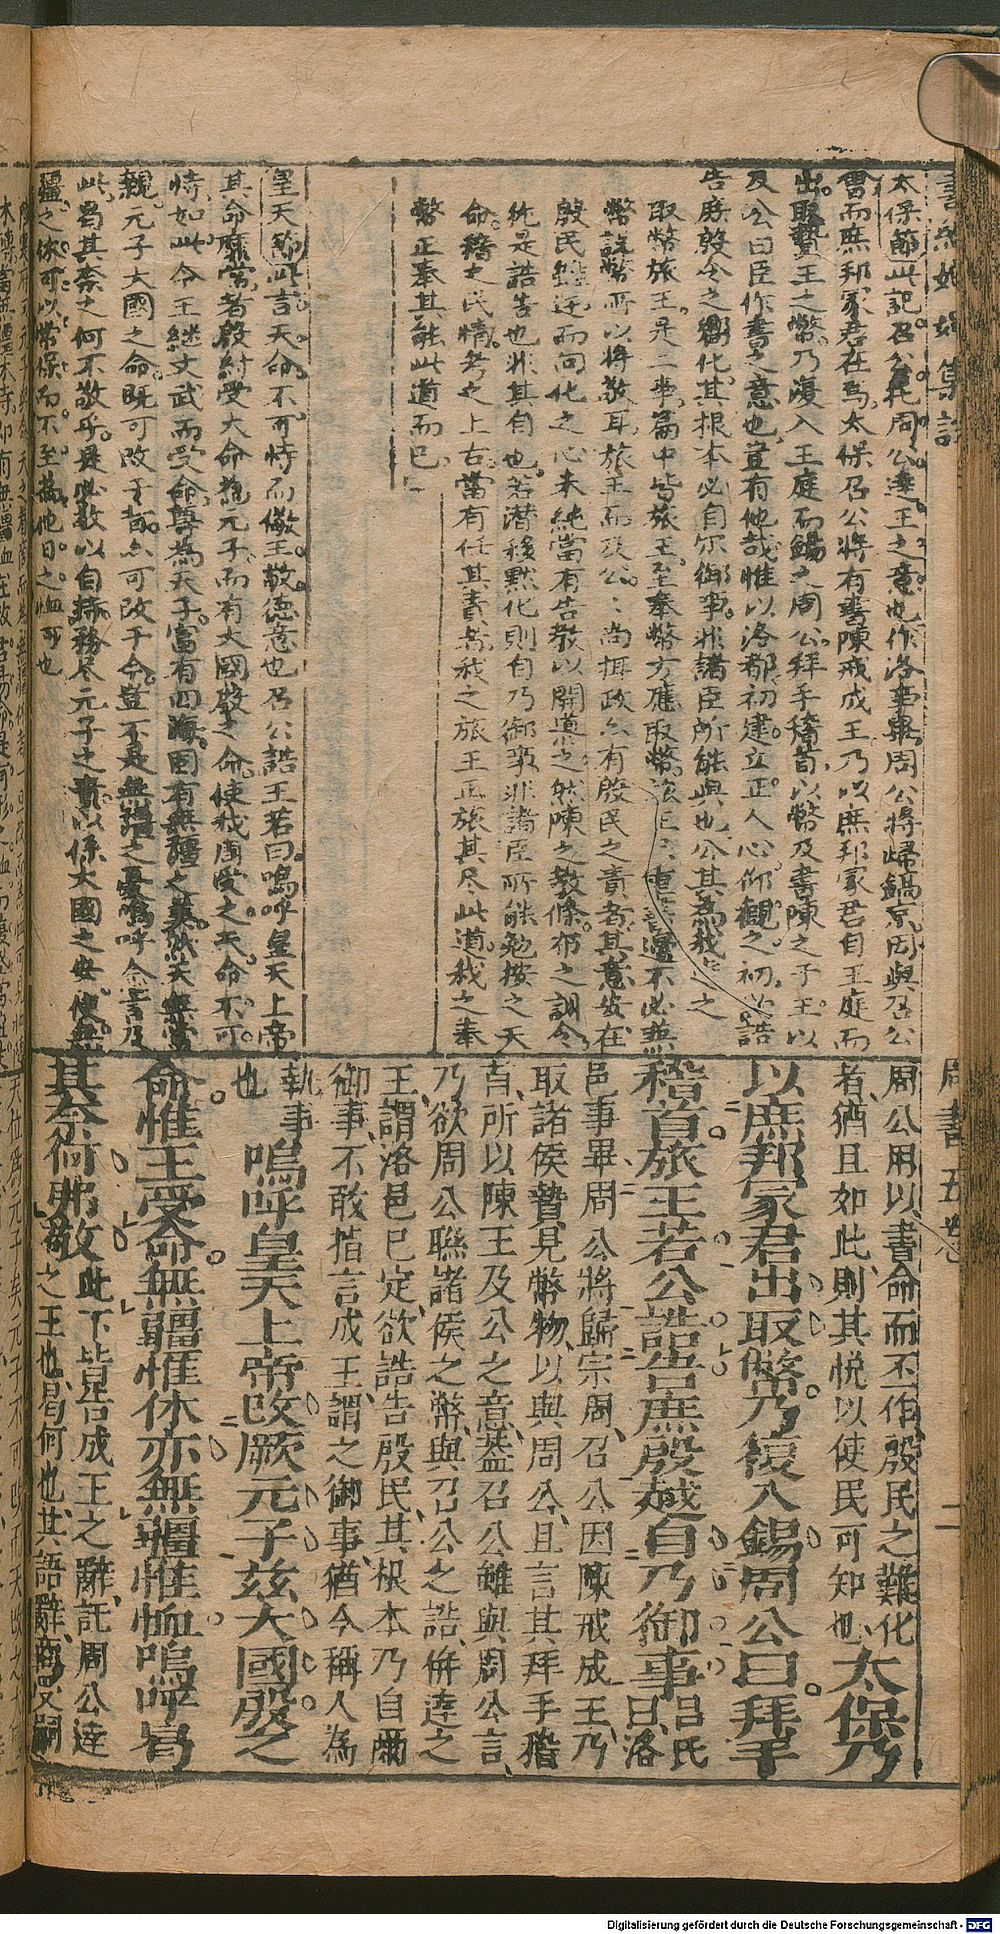 太保節此記召公托周公達王之意也作洛事畢周公將歸鎬京因與召公
會而庶邦冢君在焉太保召公將有書陳戒成王乃以庶邦冢君自王庭而
出取贄王之幣乃復入王庭而錫之周公拜手稽首以幣及書陳之于王以
及公曰臣作書之意也豈有他哉惟以洛都初建立正人心仰觀之初必誥
告庶殷今之嚮化其根本必自尔御事非諸臣所能與也公其為我
取幣旅王是二事篇中皆旅王至奉幣方應取幣
幣説幣所以将敬耳旅王而及公尚拒政亦有殷民之責者其意安在
殷民雖迁而向化之心未純當有告教以開導之然陳之教條布之訓令
統是誥告也非其自也若潛移默化則自乃御事非諸臣所能勉按之天
命稽之民情考之上右當有任其責者我之旅王正旅其尽此道我之奉
幣正奉其能此道而已
皇天節此言天命不可恃而儆王敬德意也召公誥王若曰嗚呼皇天上帝
其命靡常者殷紂受大命為元子而有大國殷之命使我周受之天命不可
恃如此今王継文武而受命尊為天子富有四海固有無疆之美然天無常
親元子大國之命既可改于昔亦可改于今豈不是無疆之憂嗚呼念言及
此曷其柰之何不敬乎是必敬以自持務尽元子之責以係大國之安使無
疆之休可以常保而不至為他日之恤可也
周書五卷
周公用以書命而不作殷民之難化
者猶且如此則其悦以使民可知也 太保乃
以庶邦冢君出取幣乃復入錫周公曰拜手
稽首旅王若公誥告庶殷越自乃御事 呂氏曰洛
邑事畢周公將歸宗周召公因陳戒成王乃
取諸侯贄見幣物以與周公且言其拜手稽
首所以陳王及公之意葢召公雖與周公言
乃欲周公聯諸侯之幣與召公之誥併達之
王謂洛邑已定欲誥告殷民其根本乃自爾
御事不敢指言成王謂之御事猶今稱人為
執事也 嗚呼皇天上帝改厥元子兹大國殷之
命惟王受命無疆惟休亦無疆惟恤嗚呼曷
其柰何弗敬 此下皆告成王之辭託周公達
之王也曷何也其語辭
Digitalisierung gefördert durch die Deutsche Forschungsgemeinschaft - DFG